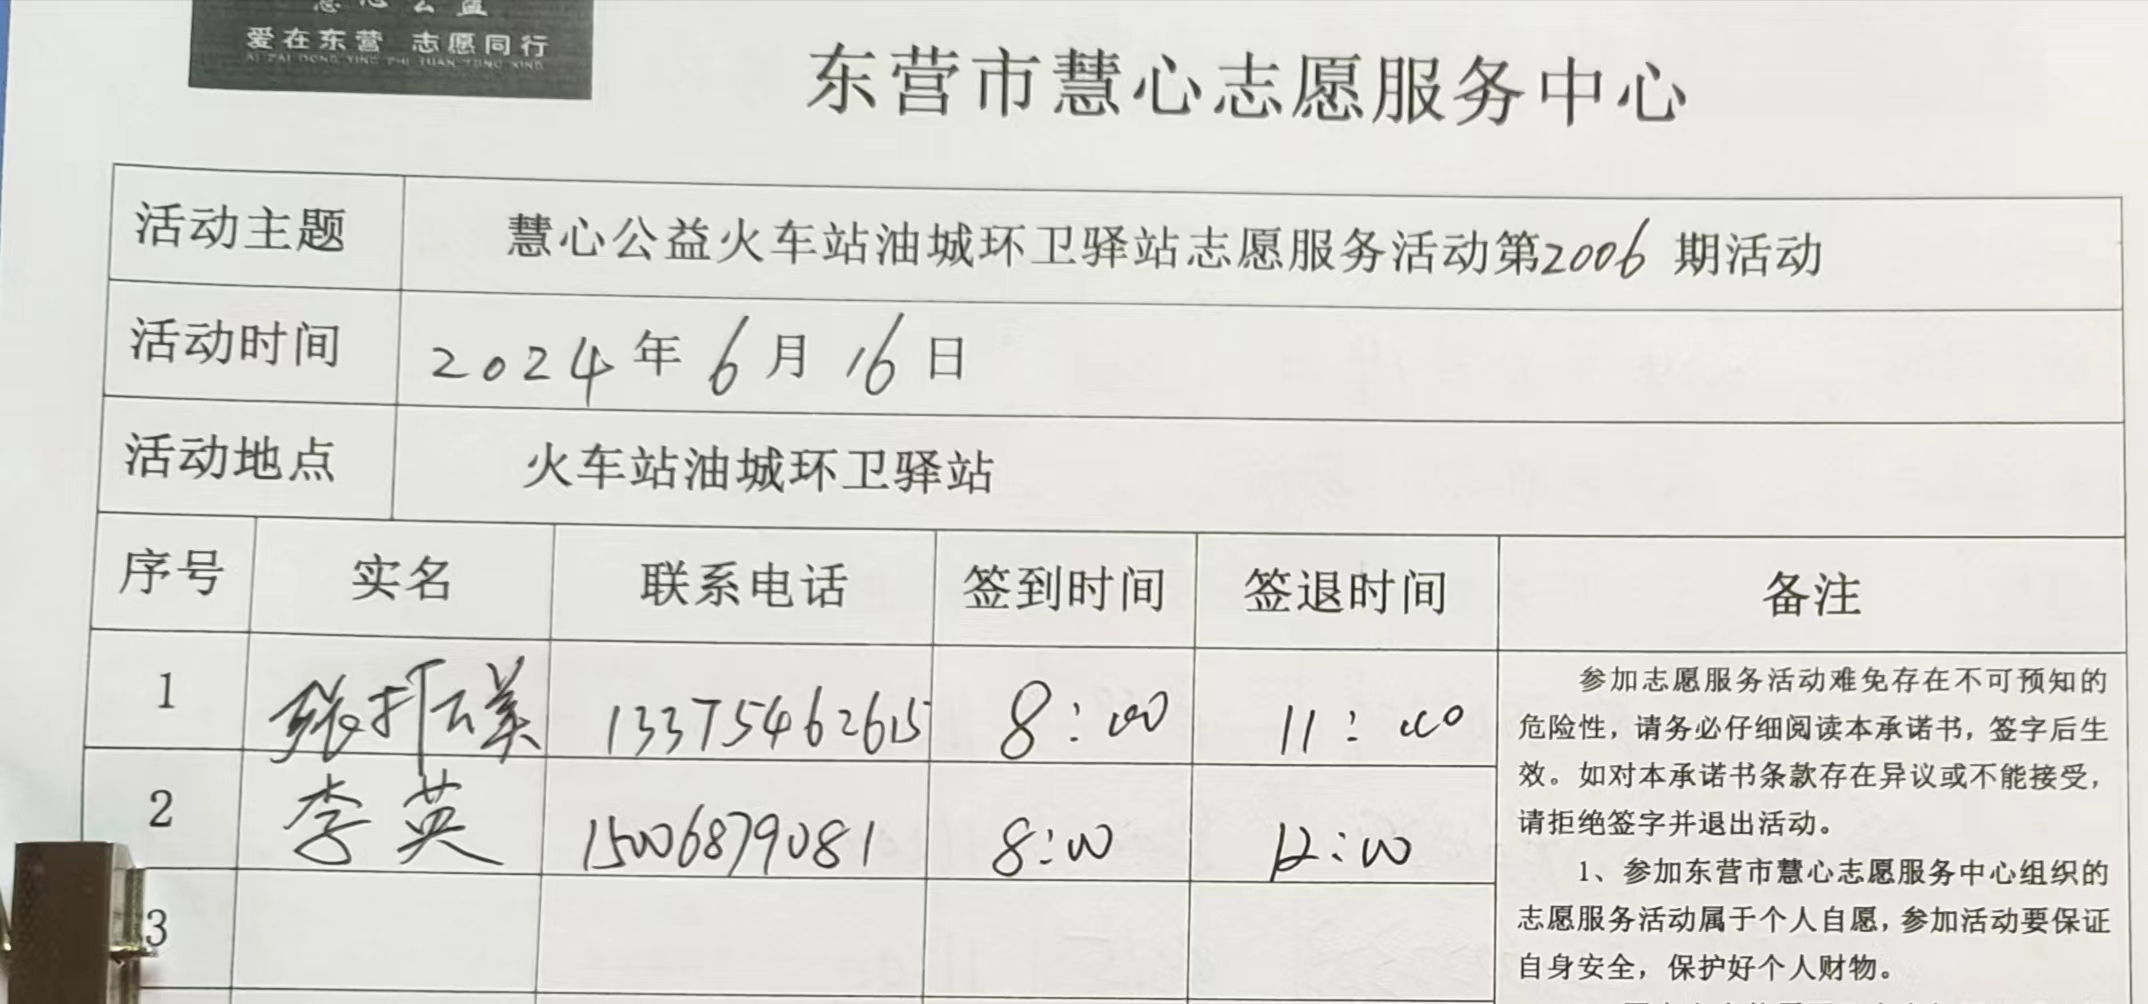 慧心公益
爱在东营 志愿同行
AI ZAI DONG YING ZHI YUAN TONG XING
东营市慧心志愿服务中心
活动主题 慧心公益火车站油城环卫驿站志愿服务活动第2006期活动
活动时间 2024年6月16日
活动地点 火车站油城环卫驿站
序号 实名 联系电话 签到时间 签退时间 备注
1 张 美 13375462615 8:00 11:00
2 李英 15006879081 8:00 12:00
3
参加志愿服务活动难免存在不可预知的
危险性，请务必仔细阅读本承诺书，签字后生
效。如对本承诺书条款存在异议或不能接受，
请拒绝签字并退出活动。
1、参加东营市慧心志愿服务中心组织的
志愿服务活动属于个人自愿，参加活动要保证
自身安全，保护好个人财物。